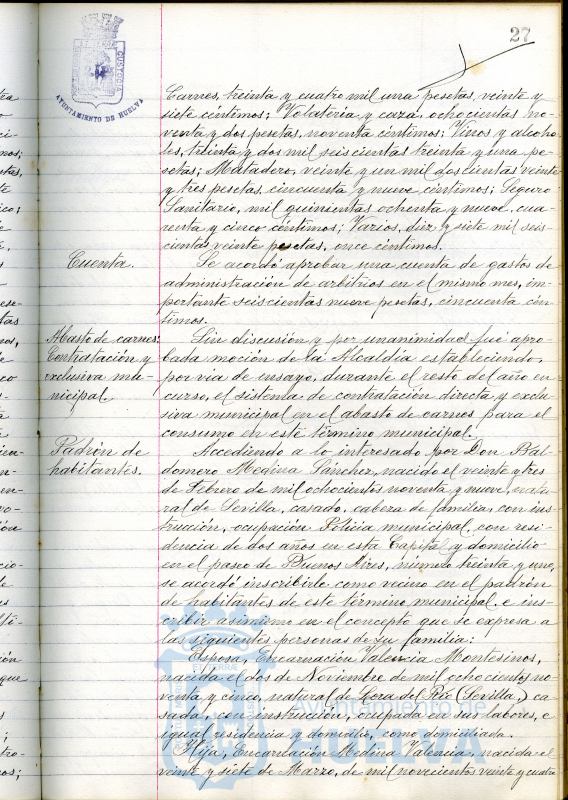 27
AYUNTAMIENTO DE HUELVA
Carnes, treinta y cuatro mil una pesetas, veinte y
siete céntimos; Volatería y caza, ochocientas no-
venta y dos pesetas, noventa céntimos; Vinos y alcoho-
les, treinta y dos mil seiscientas treinta y una pe-
setas; Matadero, veinte y un mil doscientas veinte
y tres pesetas, cincuenta y nueve céntimos; Seguro
Sanitario, mil quinientas ochenta y nueve, cua-
renta y cinco céntimos; Varios, diez y siete mil seis-
cientas veinte pesetas, once céntimos.
Cuenta.
Se acordó aprobar una cuenta de gastos de
administración de arbitrios en el mismo mes, im-
portante seiscientas nueve pesetas, cincuenta cén-
timos.
Abasto de carnes:
Contratación y
exclusiva mu-
nicipal.
Sin discusión y por unanimidad fué apro-
bada moción de la Alcaldía estableciendo,
por vía de ensayo, durante el resto del año en
curso, el sistema de contratación directa y exclu-
siva municipal en el abasto de carnes para el
consumo en este término municipal.
Padrón de
habitantes.
Accediendo a lo interesado por Don Bal-
domero Medina Sánchez, nacido el veinte y tres
de Febrero de mil ochocientos noventa y nueve, natu-
ral de Sevilla, casado, cabeza de familia, con ins-
trucción, ocupación Policía municipal, con resi-
dencia de dos años en esta Capital y domicilio
en el paseo de Buenos Aires, número treinta y uno,
se acordó inscribirle como vecino en el padrón
de habitantes de este término municipal, e ins-
cribir asimismo en el concepto que se expresa a
las siguientes personas de su familia:
Esposa, Encarnación Valencia Montesinos,
nacida el dos de Noviembre de mil ochocientos no-
venta y cinco, natural de Lora del Río (Sevilla), ca-
sada, con instrucción, ocupada en sus labores, e
igual residencia y domicilio, como domiciliada.
Hija, Encarnación Medina Valencia, nacida el
veinte y siete de Marzo, de mil novecientos veinte y cuatro
Ayuntamiento de
HUELVA